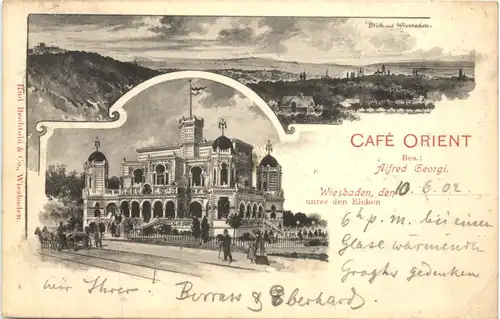 Blick auf Wiesbaden.
CAFÉ ORIENT
Bes.:
Alfred Georgi.
Wiesbaden, den 10.6.02
unter den Eichen
6 h p. m. bei einem
Glase wärmendn
Groghs gedenken
wir Ihrer. Borrass & Eberhardt
Rud. Bechtold & Co., Wiesbaden.